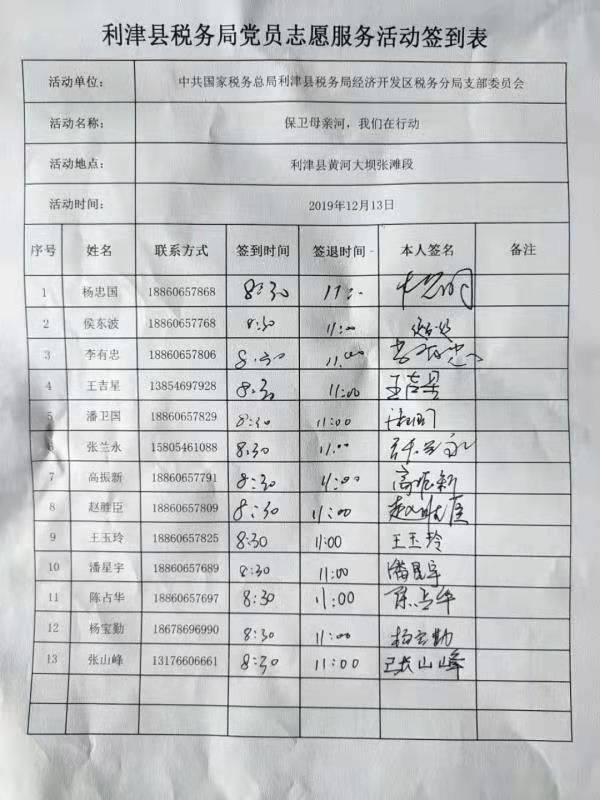 利津县税务局党员志愿服务活动签到表
活动单位： 中共国家税务总局利津县税务局经济开发区税务分局支部委员会
活动名称： 保卫母亲河，我们在行动
活动地点： 利津县黄河大坝张滩段
活动时间： 2019年12月13日
序号 姓名 联系方式 签到时间 签退时间 本人签名 备注
1 杨忠国 18860657868 8:30
2 侯东波 18860657768 8:30 11:00
3 李有忠 18860657806 8:30 11:00 李有忠
4 王吉星 13854697928 8:30 11:00 王吉星
5 潘卫国 18860657829 8:30 11:00
6 张兰永 15805461088 8:30 11:00 张兰永
7 高振新 18860657791 8:30 11:00 高振新
8 赵胜臣 18860657809 8:30 11:00 赵胜臣
9 王玉玲 18860657825 8:30 11:00 王玉玲
10 潘星宇 18860657689 8:30 11:00 潘星宇
11 陈占华 18860657697 8:30 11:00 陈占华
12 杨宝勤 18678696990 8:30 11:00 杨宝勤
13 张山峰 13176606661 8:30 11:00 张山峰